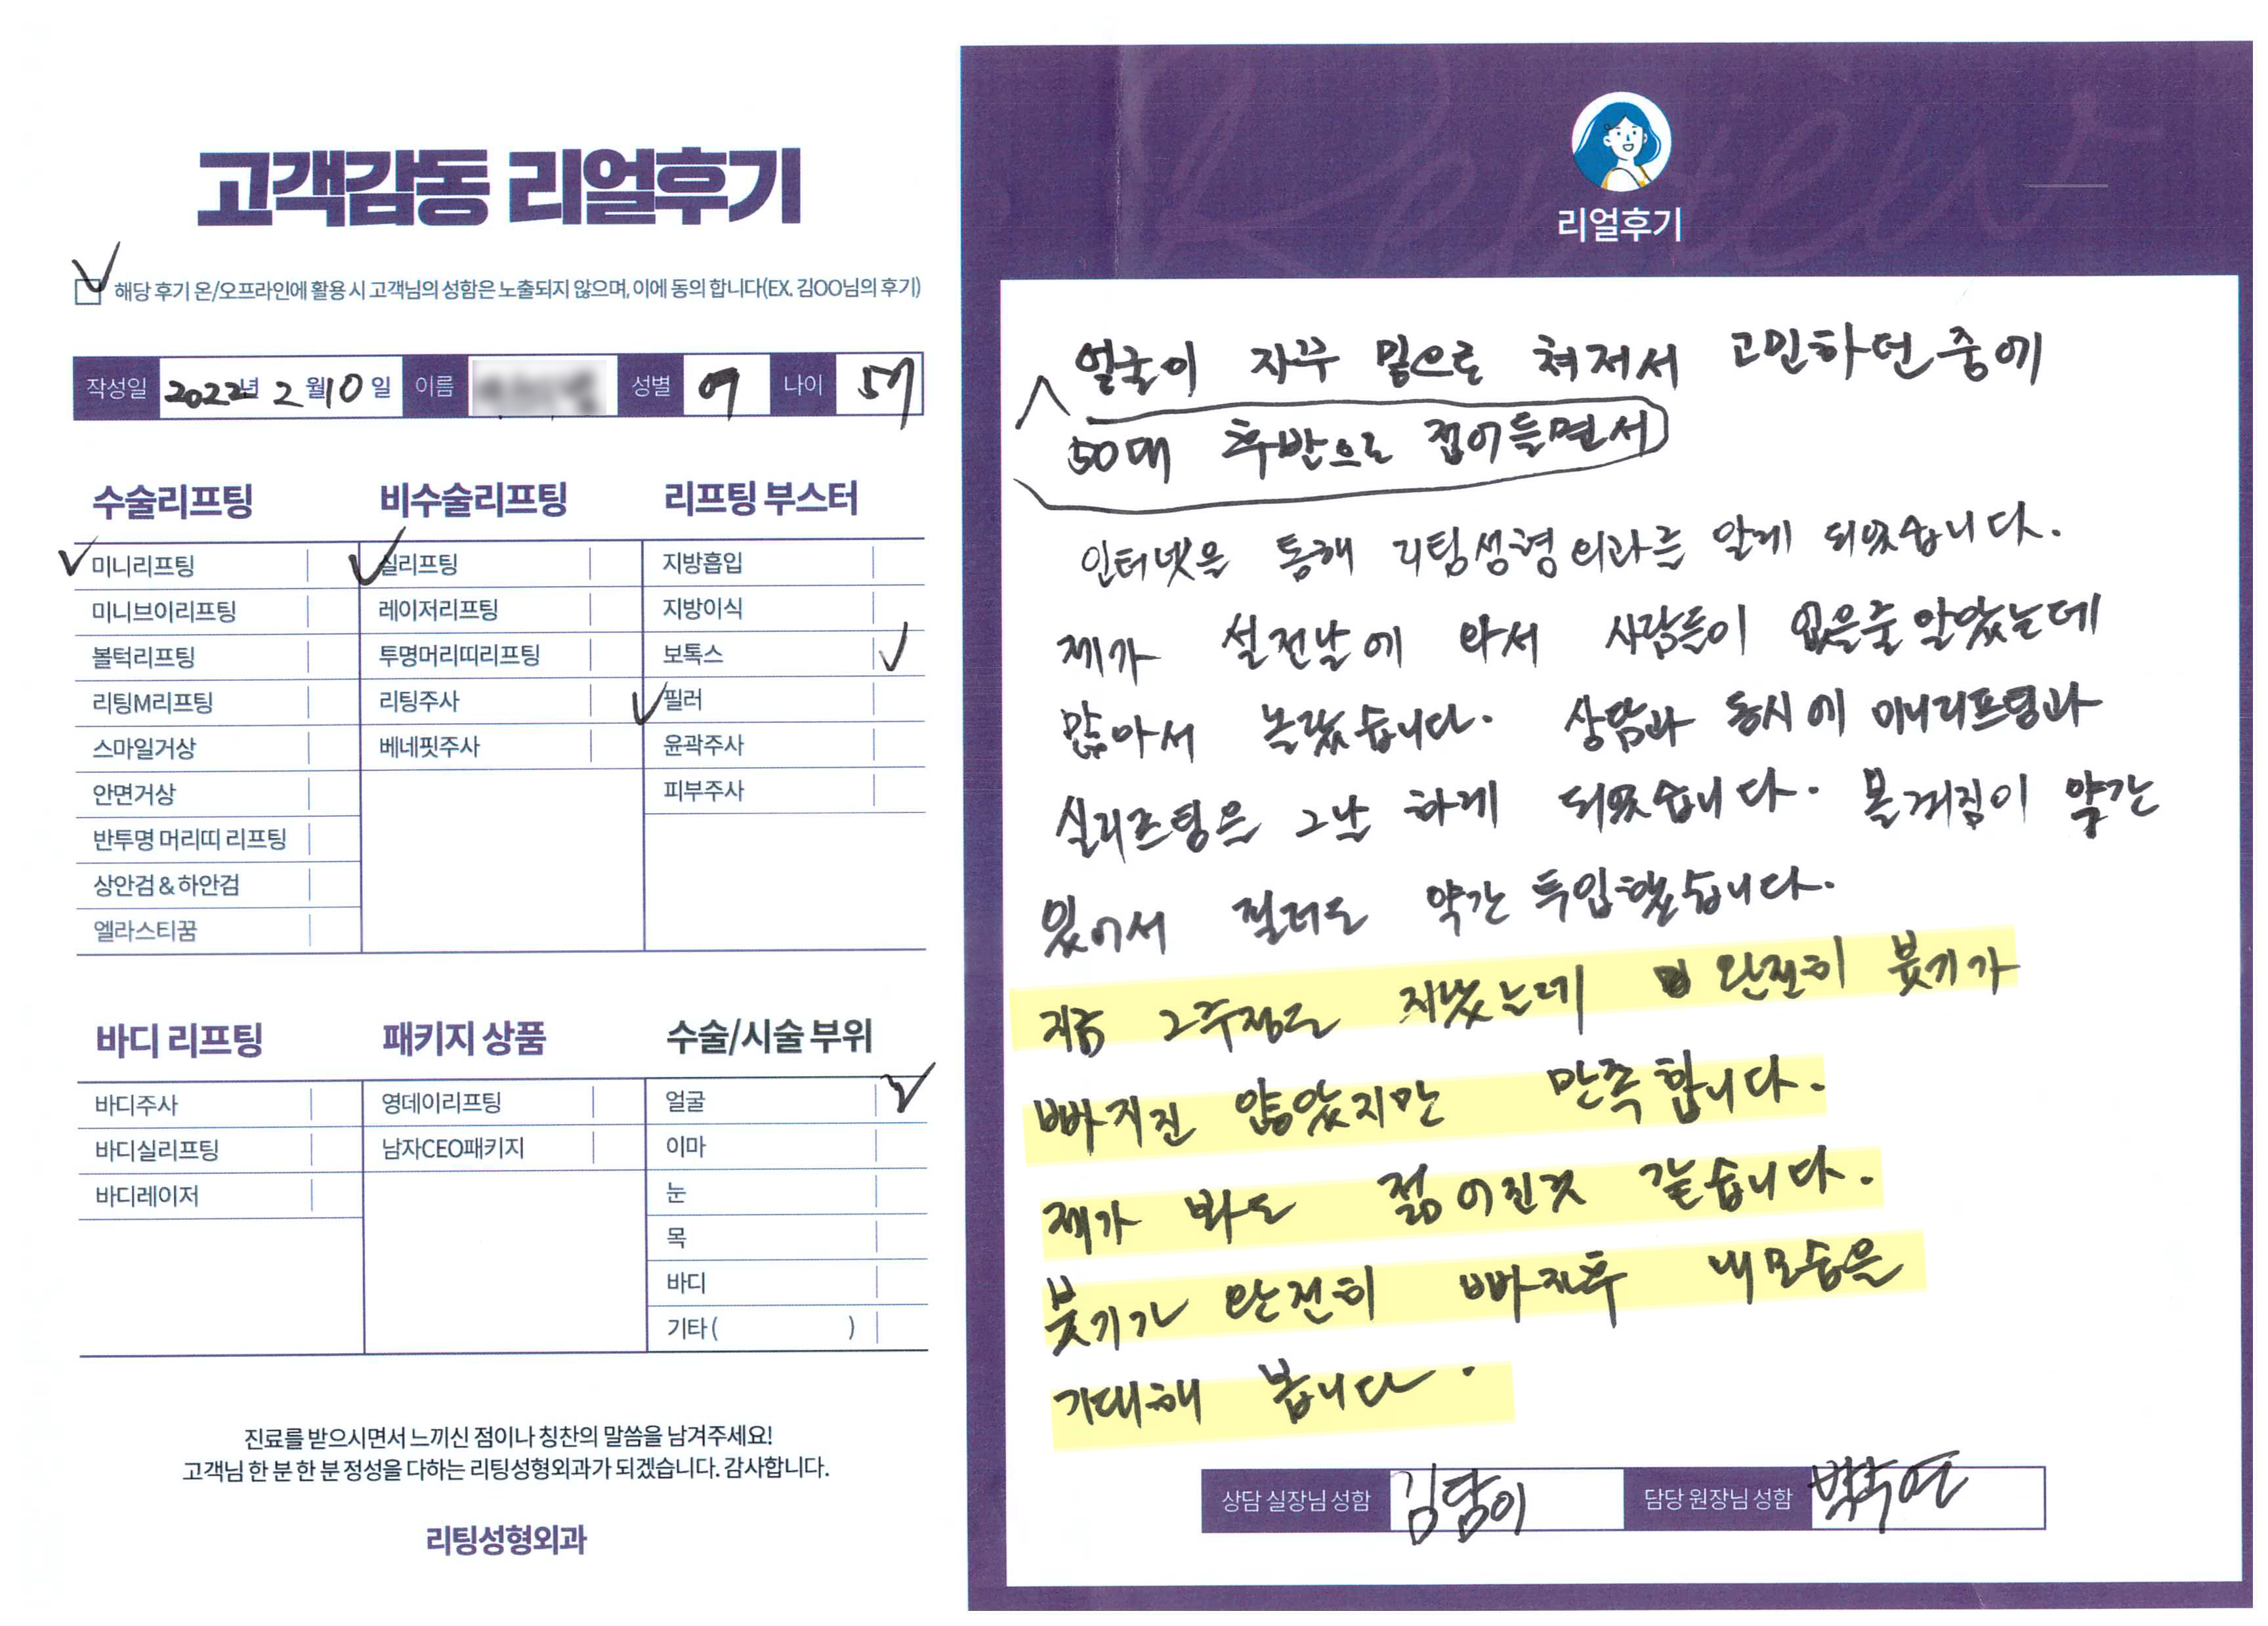 고객감동 리얼후기
해당 후기 온/오프라인에 활용 시 고객님의 성함은 노출되지 않으며, 이에 동의 합니다(EX. 김OO님의 후기)
작성일 2022년 2월 10일 이름 성별 여 나이 57
수술리프팅
미니리프팅
미니브이리프팅
볼턱리프팅
리팅M리프팅
스마일거상
안면거상
반투명 머리띠 리프팅
상안검 & 하안검
엘라스티꿈
비수술리프팅
실리프팅
레이저리프팅
투명머리띠리프팅
리팅주사
베네핏주사
리프팅 부스터
지방흡입
지방이식
보톡스
필러
윤곽주사
피부주사
바디 리프팅
바디주사
바디실리프팅
바디레이저
패키지 상품
영데이리프팅
남자CEO패키지
수술/시술 부위
얼굴
이마
눈
목
바디
기타 ( )
진료를 받으시면서 느끼신 점이나 칭찬의 말씀을 남겨주세요!
고객님 한 분 한 분 정성을 다하는 리팅성형외과가 되겠습니다. 감사합니다.
리팅성형외과
리얼후기
얼굴이 자꾸 밑으로 쳐져서 고민하던 중에
50대 후반으로 접어들면서
인터넷을 통해 리팅성형외과를 알게 되었습니다.
제가 설전날에 와서 사람들이 없은줄 알았는데
많아서 놀랐습니다. 상담과 동시에 미니리프팅과
실리프팅은 그날 하게 되었습니다. 볼꺼짐이 약간
있어서 필러도 약간 투입했습니다.
지금 2주정도 지났는데 완전히 붓기가
빠지진 않았지만 만족합니다.
제가 봐도 젊어진것 같습니다.
붓기가 완전히 빠진후 내모습을
기대해 봅니다.
상담 실장님 성함 김담이 담당 원장님 성함